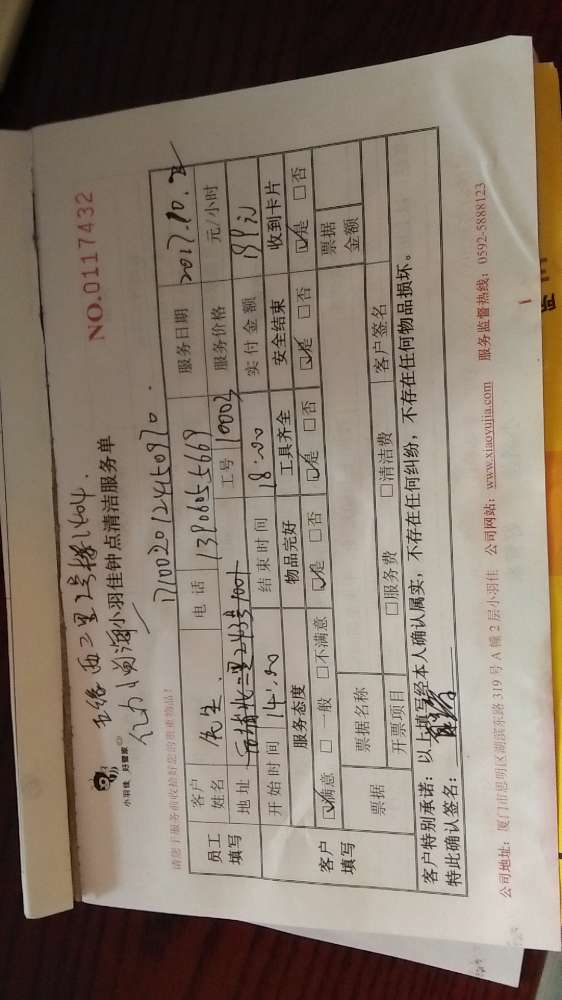 NO.0117432
西二里2号楼1404.
小羽佳 好管家
小羽佳钟点清洁服务单
请您于服务前收拾好您的贵重物品!
1710020124150970.
员工填写 客户姓名 先生 电话 13906055669 服务日期 2017.10.2
地址 工号 10002 服务价格 元/小时
开始时间 14:00 结束时间 18:00 实付金额 199元
客户填写 服务态度 物品完好 工具齐全 安全结束 收到卡片
☑满意 □一般 □不满意 ☑是 □否 ☑是 □否 ☑是 □否 ☑是 □否
票据 票据名称 票据金额
开票项目 □服务费 □清洁费 客户签名
客户特别承诺:以上填写经本人确认属实,不存在任何纠纷,不存在任何物品损坏。
特此确认签名:
公司地址:厦门市思明区湖滨东路319号A幢2层小羽佳 公司网站:www.xiaoyujia.com 服务监督热线:0592-5888123